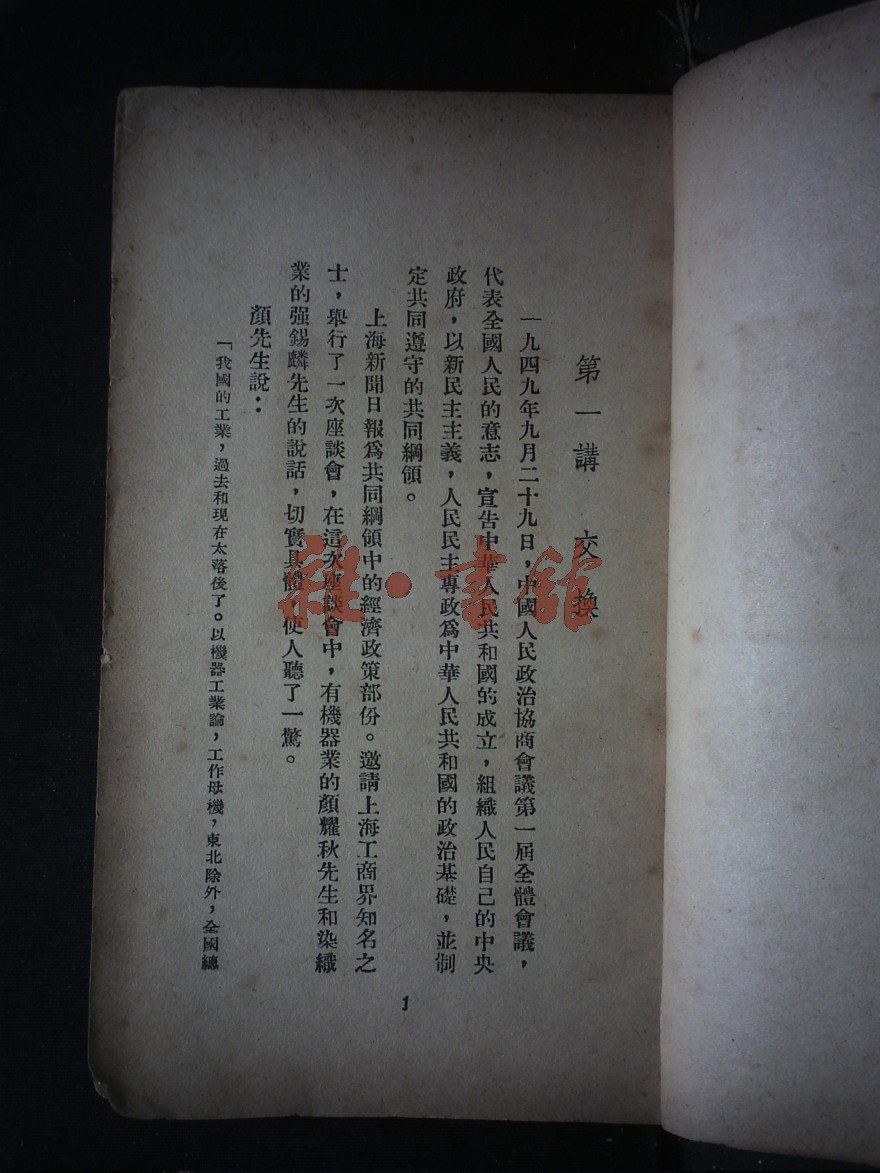 第一講 交換
一九四九年九月二十九日，中國人民政治協商會議第一屆全體會議，
代表全國人民的意志，宣告中華人民共和國的成立，組織人民自己的中央
政府，以新民主主義，人民民主專政爲中華人民共和國的政治基礎，並制
定共同遵守的共同綱領。
上海新聞日報爲共同綱領中的經濟政策部份。邀請上海工商界知名之
士，舉行了一次座談會，在這次座談會中，有機器業的顏耀秋先生和染織
業的强錫麟先生的說話，切實具體，使人聽了一驚。
顏先生說：
「我國的工業，過去和現在太落後了。以機器工業論，工作母機，東北除外，全國總
1
雜·書館